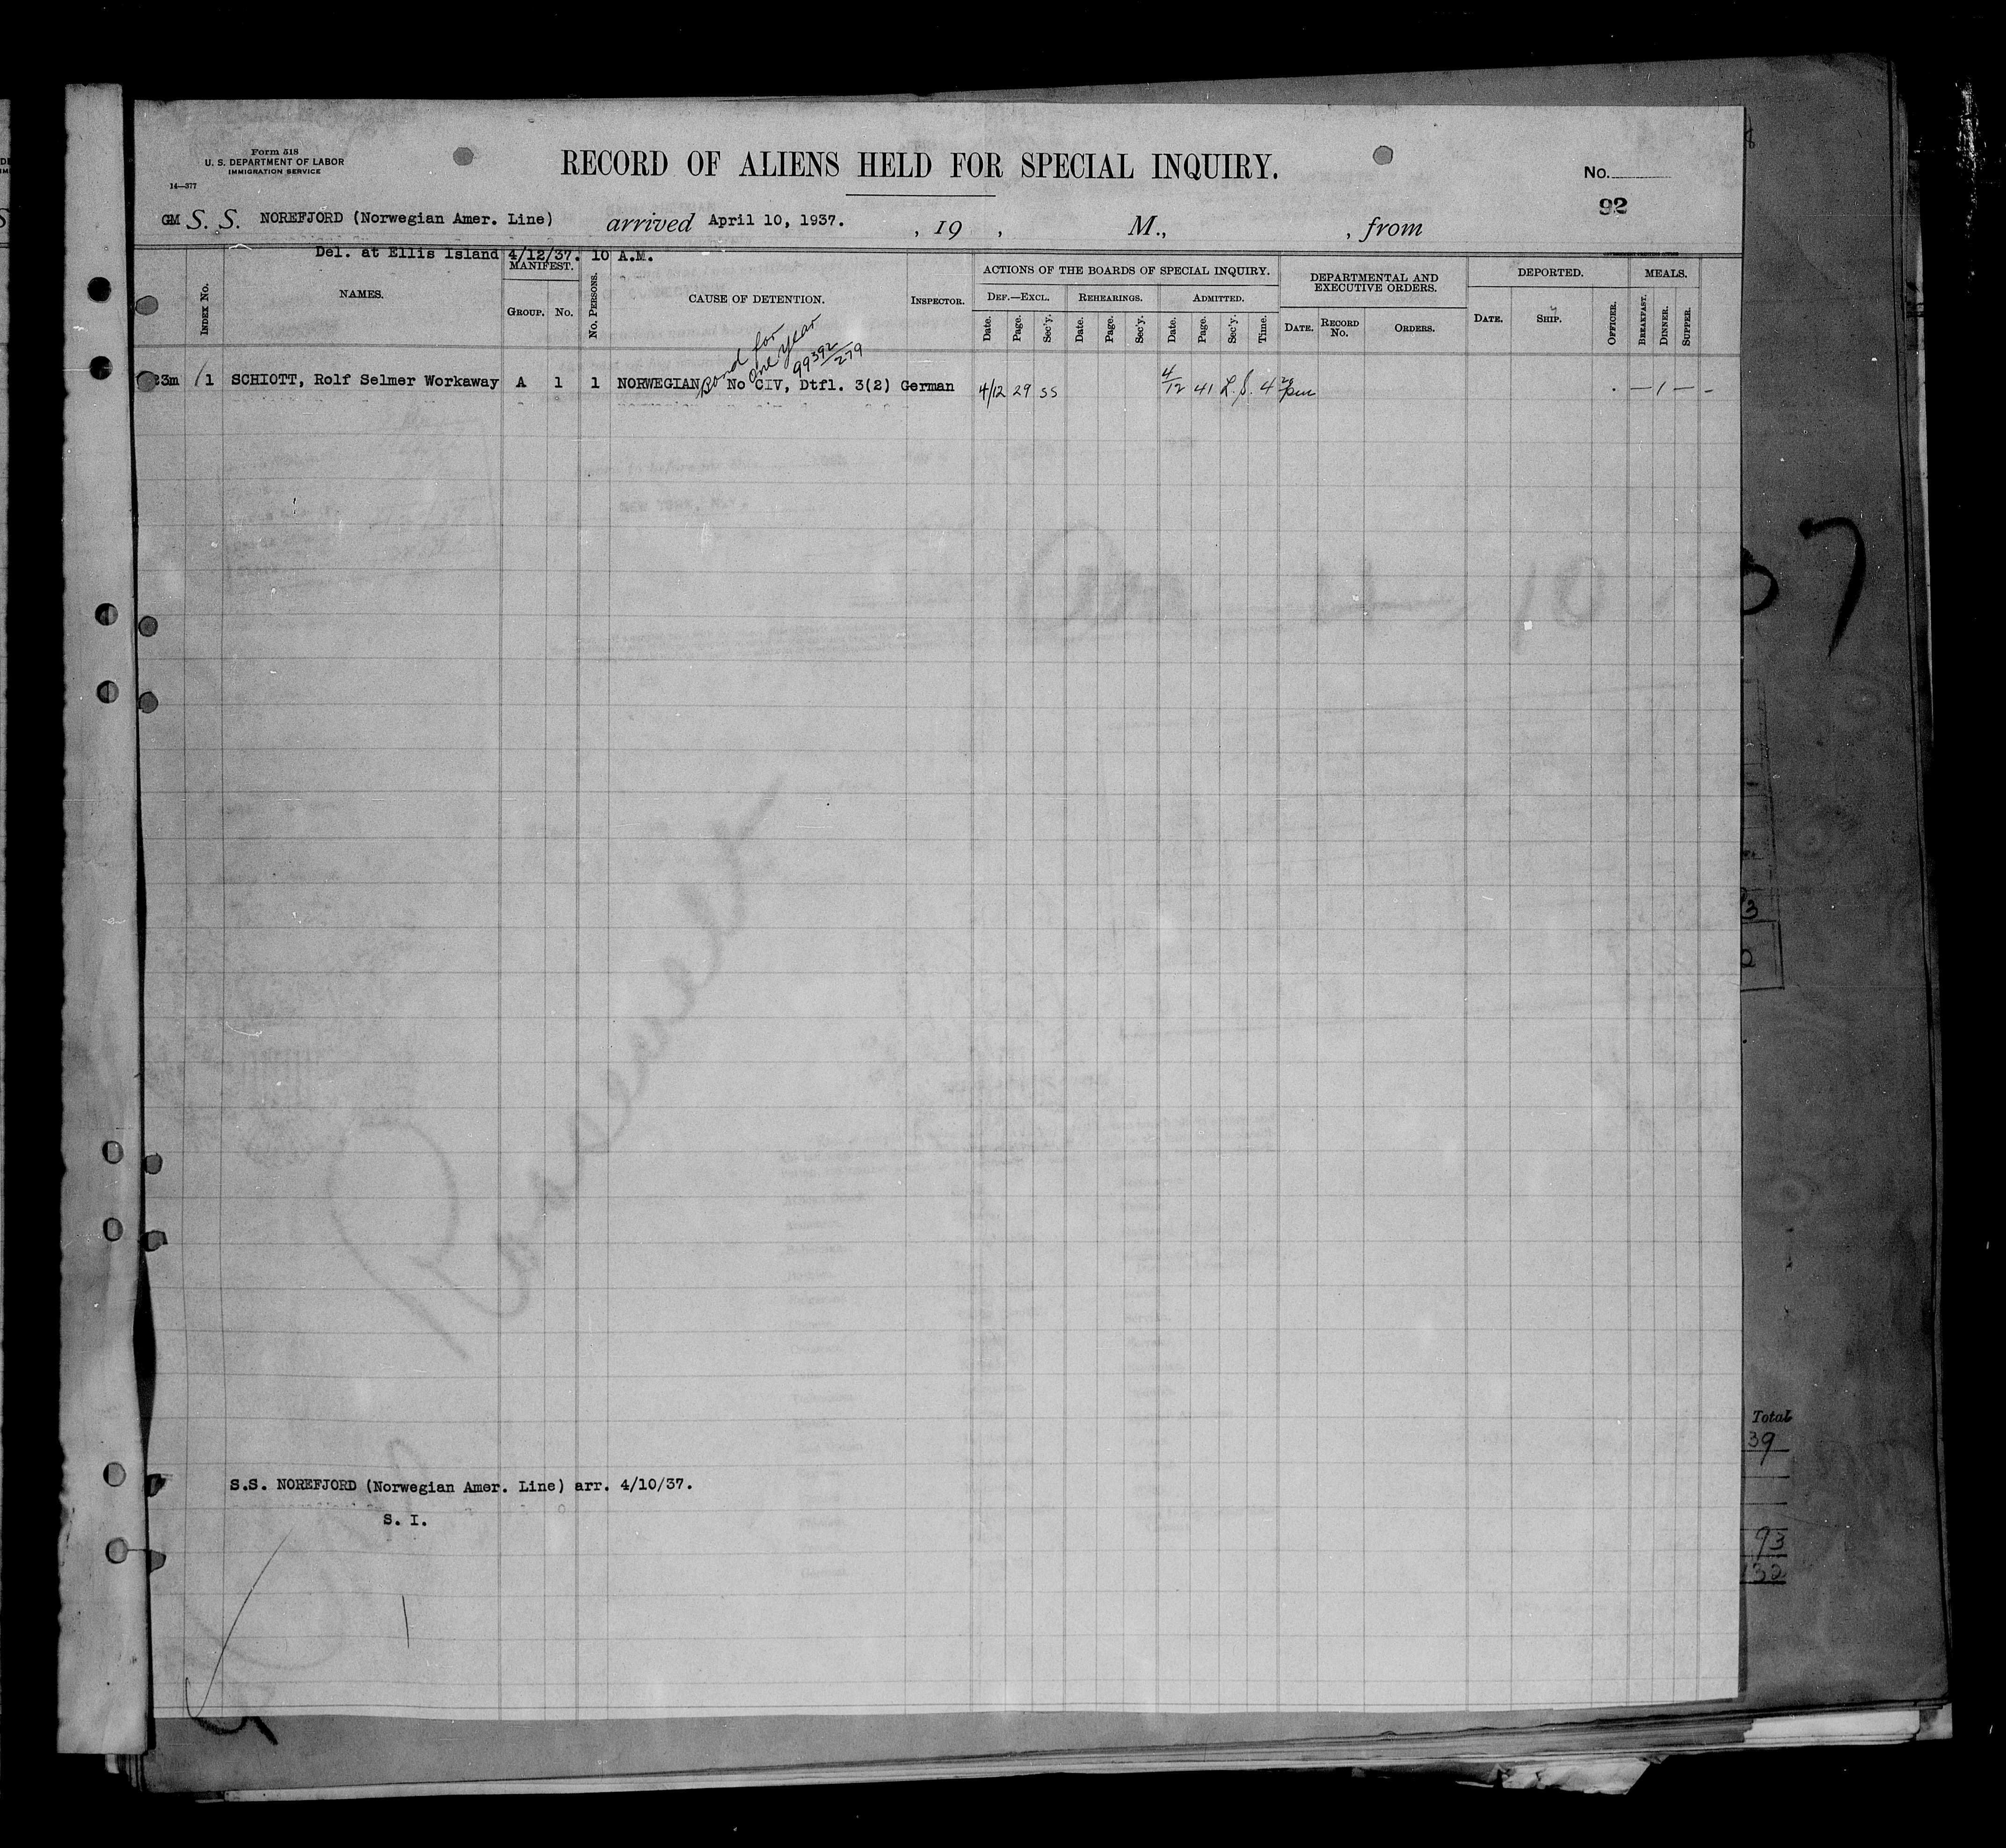 Form 518
U. S. DEPARTMENT OF LABOR
IMMIGRATION SERVICE
14—377
RECORD OF ALIENS HELD FOR SPECIAL INQUIRY.
No.
92
GM S. S. NOREFJORD (Norwegian Amer. Line) arrived April 10, 1937. , 19 , M., , from
Del. at Ellis Island 4/12/37. 10 A.M.
INDEX No. NAMES. MANIFEST. GROUP. No. No. PERSONS. CAUSE OF DETENTION. INSPECTOR. ACTIONS OF THE BOARDS OF SPECIAL INQUIRY. DEPARTMENTAL AND EXECUTIVE ORDERS. DEPORTED. MEALS.
DEF.—EXCL. REHEARINGS. ADMITTED.
Date. Page. Sec'y. Date. Page. Sec'y. Date. Page. Sec'y. Time. DATE. RECORD No. ORDERS. DATE. SHIP. OFFICER. BREAKFAST. DINNER. SUPPER.
Bond for
One year
99392/279
23m 1 SCHIOTT, Rolf Selmer Workaway A 1 1 NORWEGIAN No CIV, Dtfl. 3(2) German 4/12 29 SS 4/12 41 L.S. 4 20 pm — 1 — -
S.S. NOREFJORD (Norwegian Amer. Line) arr. 4/10/37.
S. I.
Total
39
93
132